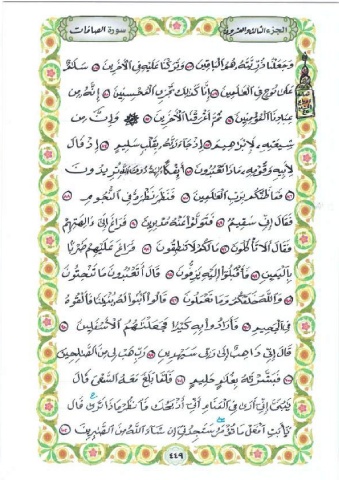 الجزء الثالث والعشرون
سورة الصافات
وَجَعَلْنَا ذُرِّيَّتَهُ هُمُ الْبَاقِينَ ۝ وَتَرَكْنَا عَلَيْهِ فِي الْآخِرِينَ ۝ سَلَامٌ
عَلَىٰ نُوحٍ فِي الْعَالَمِينَ ۝ إِنَّا كَذَٰلِكَ نَجْزِي الْمُحْسِنِينَ ۝ إِنَّهُ مِنْ
عِبَادِنَا الْمُؤْمِنِينَ ۝ ثُمَّ أَغْرَقْنَا الْآخَرِينَ ۝ وَإِنَّ مِن
شِيعَتِهِ لَإِبْرَاهِيمَ ۝ إِذْ جَاءَ رَبَّهُ بِقَلْبٍ سَلِيمٍ ۝ إِذْ قَالَ
لِأَبِيهِ وَقَوْمِهِ مَاذَا تَعْبُدُونَ ۝ أَئِفْكًا آلِهَةً دُونَ اللَّهِ تُرِيدُونَ
۝ فَمَا ظَنُّكُم بِرَبِّ الْعَالَمِينَ ۝ فَنَظَرَ نَظْرَةً فِي النُّجُومِ ۝
فَقَالَ إِنِّي سَقِيمٌ ۝ فَتَوَلَّوْا عَنْهُ مُدْبِرِينَ ۝ فَرَاغَ إِلَىٰ آلِهَتِهِمْ
فَقَالَ أَلَا تَأْكُلُونَ ۝ مَا لَكُمْ لَا تَنطِقُونَ ۝ فَرَاغَ عَلَيْهِمْ ضَرْبًا
بِالْيَمِينِ ۝ فَأَقْبَلُوا إِلَيْهِ يَزِفُّونَ ۝ قَالَ أَتَعْبُدُونَ مَا تَنْحِتُونَ
۝ وَاللَّهُ خَلَقَكُمْ وَمَا تَعْمَلُونَ ۝ قَالُوا ابْنُوا لَهُ بُنْيَانًا فَأَلْقُوهُ
فِي الْجَحِيمِ ۝ فَأَرَادُوا بِهِ كَيْدًا فَجَعَلْنَاهُمُ الْأَسْفَلِينَ ۝ وَ
قَالَ إِنِّي ذَاهِبٌ إِلَىٰ رَبِّي سَيَهْدِينِ ۝ رَبِّ هَبْ لِي مِنَ الصَّالِحِينَ
۝ فَبَشَّرْنَاهُ بِغُلَامٍ حَلِيمٍ ۝ فَلَمَّا بَلَغَ مَعَهُ السَّعْيَ قَالَ
يَا بُنَيَّ إِنِّي أَرَىٰ فِي الْمَنَامِ أَنِّي أَذْبَحُكَ فَانظُرْ مَاذَا تَرَىٰ قَالَ
يَا أَبَتِ افْعَلْ مَا تُؤْمَرُ سَتَجِدُنِي إِن شَاءَ اللَّهُ مِنَ الصَّابِرِينَ ۝
٤٤٩